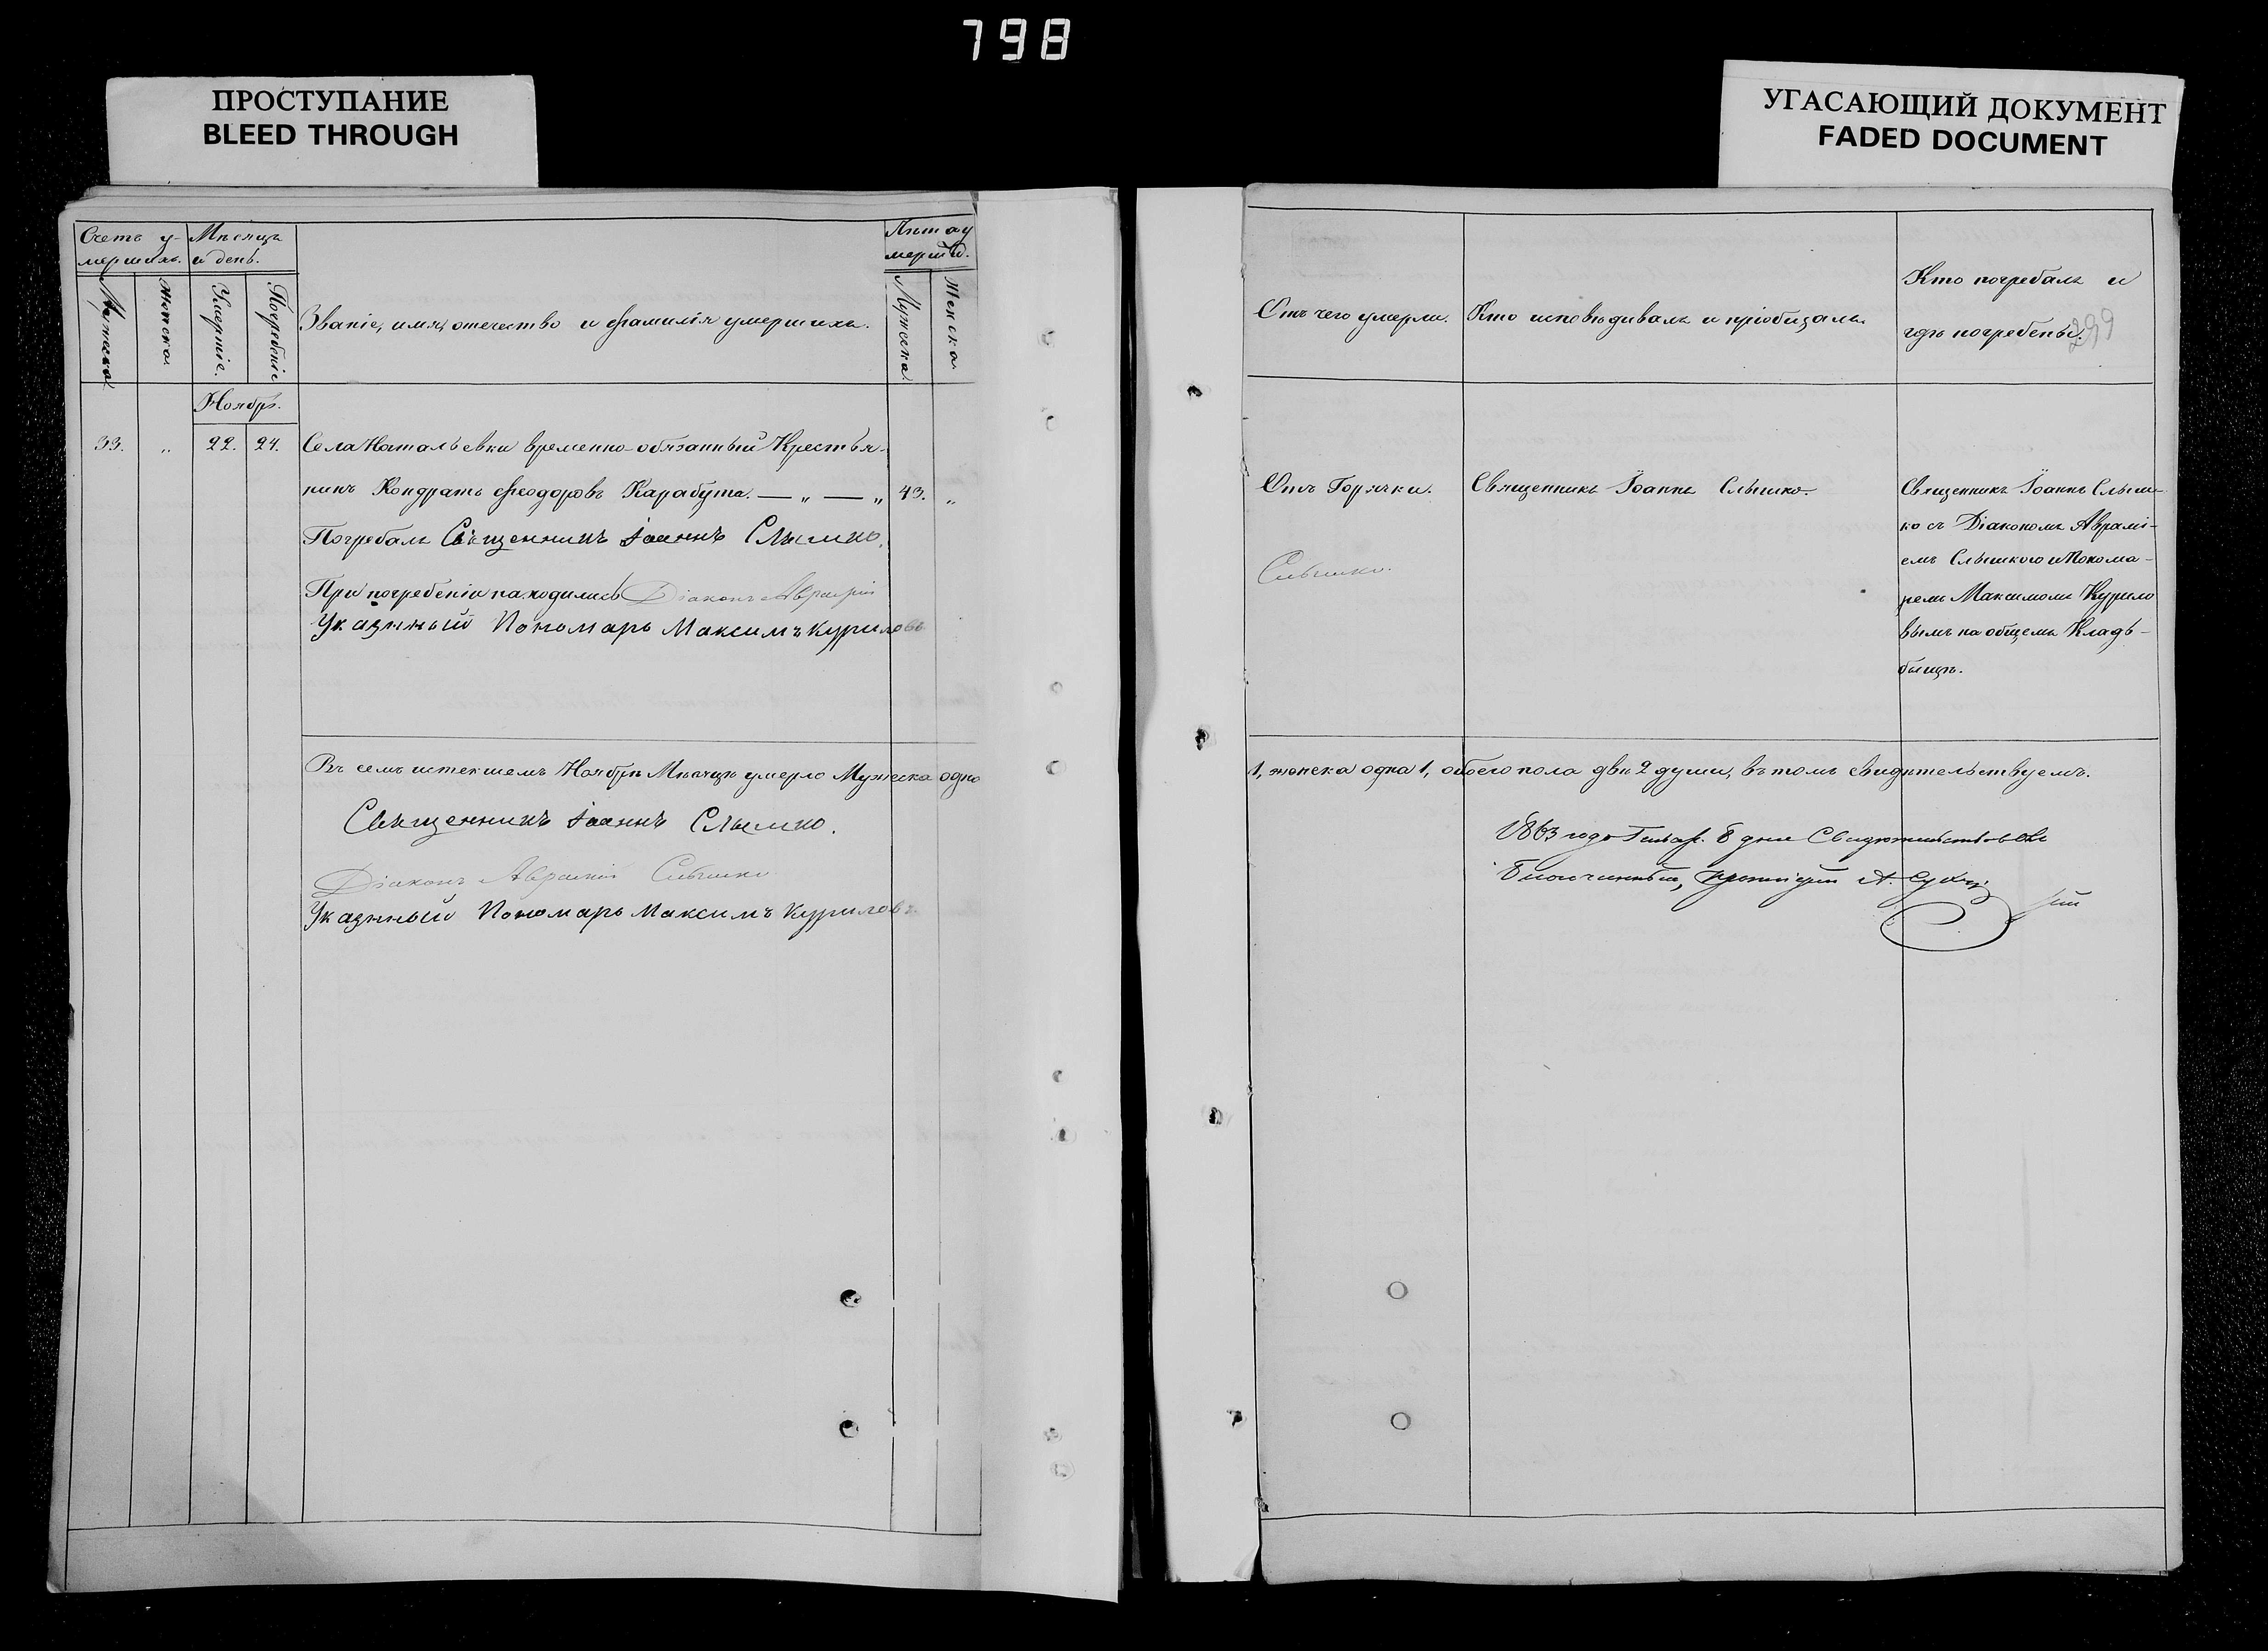 798
ПРОСТУПАНИЕ
BLEED THROUGH
УГАСАЮЩИЙ ДОКУМЕНТ
FADED DOCUMENT
Счетъ у-
мершихъ.
Мѣсяцъ
и день.
Мужеска
Женска
Умертіе.
Погребеніе
Званіе, имя, отечество и фамилія умершихъ.
Лѣта у
мерш
Мужеска
Женска
Ноябрь.
33. „ 22. 24. Села Натальевки временно-обязанный Крестья-
нинъ Кондратъ Феодоровъ Карабута. — „ — „ 43. „
Погребалъ Священникъ Іоаннъ Слышко.
При погребеніи находились Діаконъ Аврамій
Указнный Пономарь Максимъ Куриловъ
Въ семъ истекшемъ Ноябрѣ Мѣсяцѣ умерло Мужеска одно
Священникъ Іоаннъ Слышко.
Діаконъ Аврамій Слышко
Указнный Пономарь Максимъ Куриловъ.
Отъ чего умерли.
Кто исповѣдывалъ и пріобщалъ.
Кто погребалъ и
гдѣ погребены.
299
Отъ Горячки.
Священникъ Іоаннъ Слышко.
Священникъ Іоаннъ Слыш-
ко съ Діакономъ Аврамі-
емъ Слышкого и Понома-
ремъ Максимомъ Курило
вымъ на общемъ Кладь-
бищѣ.
Слышко.
1, женска одна 1, обоего пола двѣ 2 души, въ томъ свидѣтельствуемъ.
1863 года Генвар. 8 дня Свидѣтельствовалъ
Благочинный, протоіерей А.